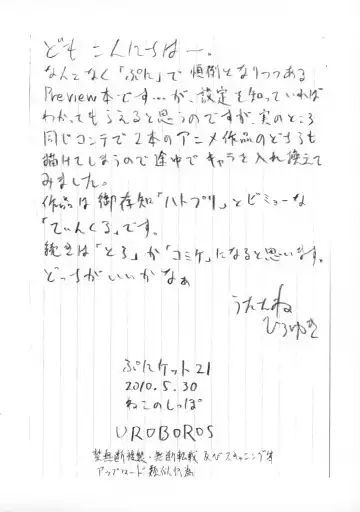 どもこんにちはー。
なんとなく「ぷに」で恒例となりつつある
Preview本です…が、設定を知っていれば
わかってもらえると思うのですが、実のところ
同じコンテで2本のアニメ作品のどちらも
描けてしまうので途中でキャラを入れ換えて
みました。
作品は御存知「ハトプリ」とビミョーな
「てぃんくる」です。
続きは「とら」か「コミケ」になると思います。
どっちがいいかなぁ
うたたね
ひろゆき
ぷにケット21
2010.5.30
ねこのしっぽ
UROBOROS
禁無断複製・無断転載 及びスキャニング等
アップロード類似行為